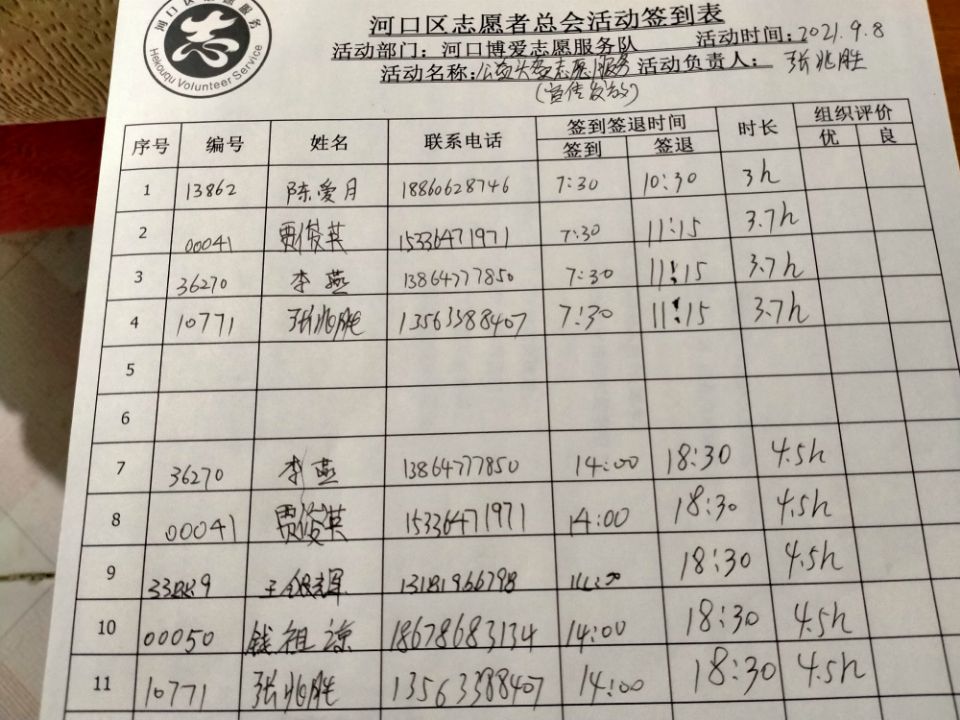 河口区志愿服务
Hekouqu Volunteer Service
河口区志愿者总会活动签到表
活动部门：河口博爱志愿服务队 活动时间：2021.9.8
活动名称：公益头盔志愿服务 活动负责人：张兆胜
(宣传发放)
序号 编号 姓名 联系电话 签到签退时间 时长 组织评价
签到 签退 优 良
1 13862 陈爱月 18860628746 7:30 10:30 3h
2 00041 贾俊英 15336471971 7:30 11:15 3.7h
3 36270 李燕 13864777850 7:30 11:15 3.7h
4 10771 张兆胜 13563388407 7:30 11:15 3.7h
5
6
7 36270 李燕 13864777850 14:00 18:30 4.5h
8 00041 贾俊英 15336471971 14:00 18:30 4.5h
9 13181966798 18:30 4.5h
10 00050 钱祖谅 18678683134 14:00 18:30 4.5h
11 10771 张兆胜 13563388407 14:00 18:30 4.5h